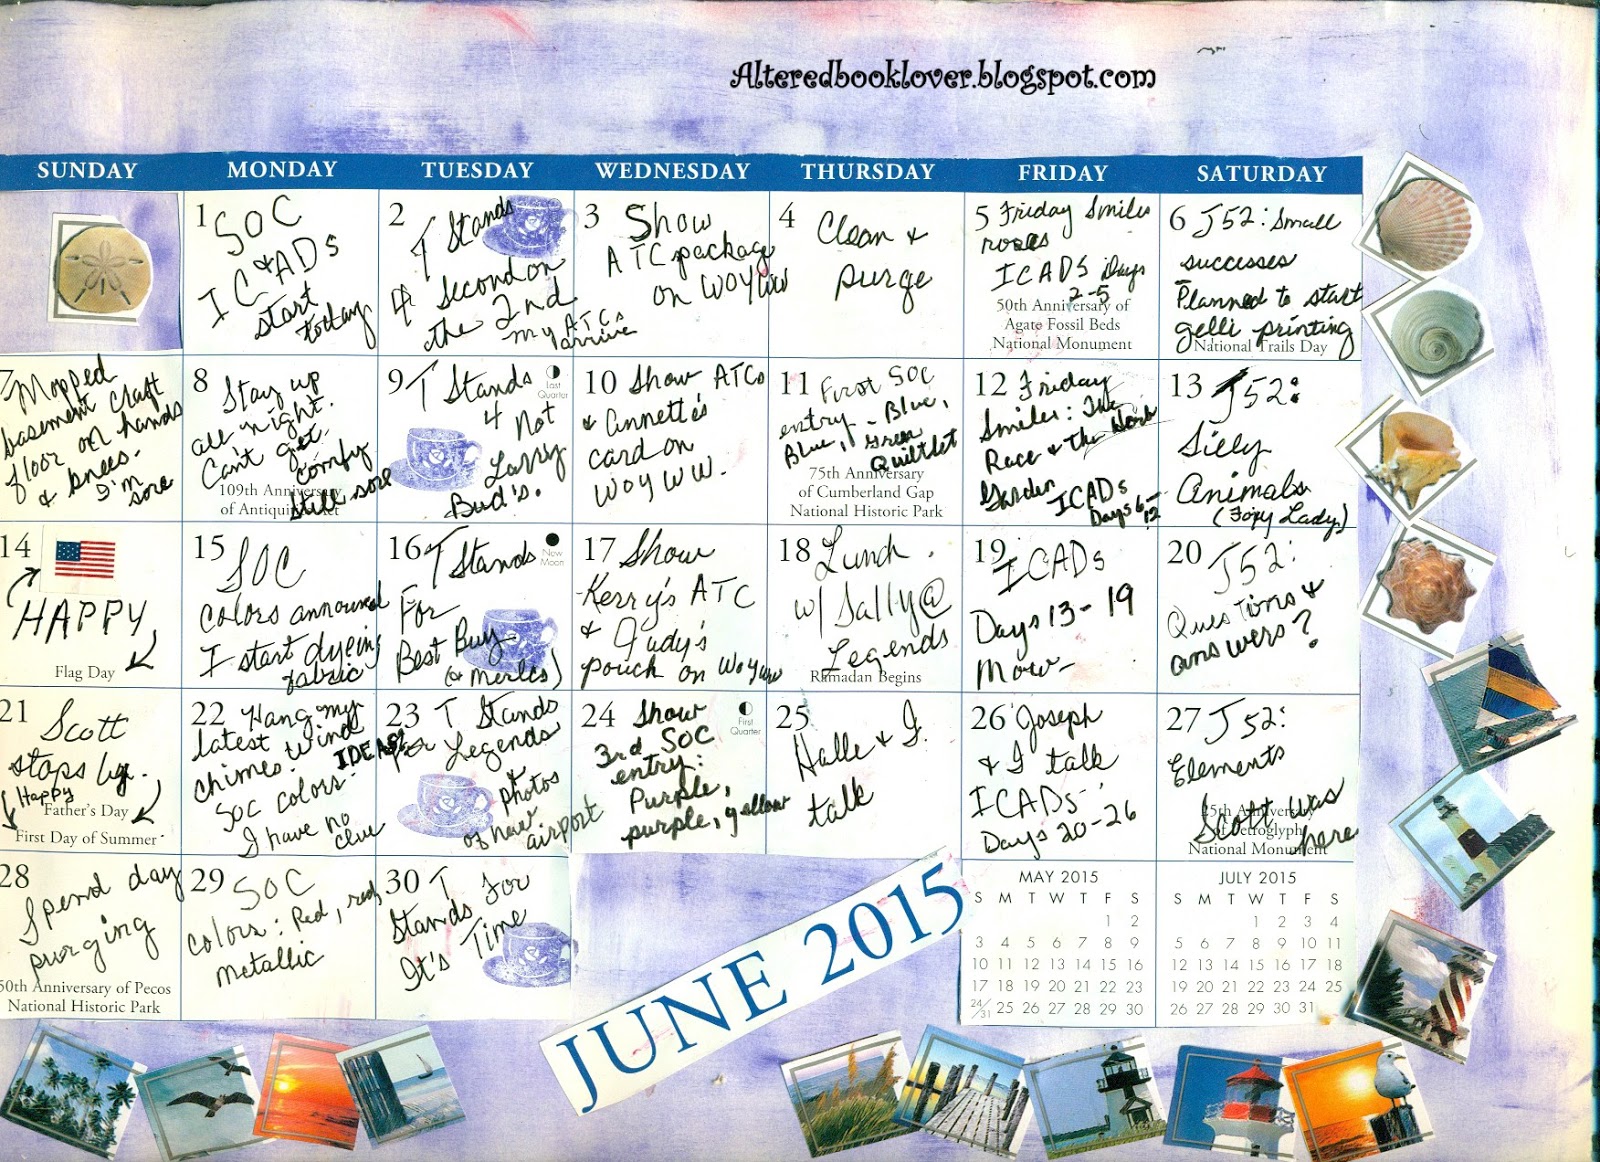 Alteredbooklover.blogspot.com
SUNDAY MONDAY TUESDAY WEDNESDAY THURSDAY FRIDAY SATURDAY
1 SOC
ICADS
start
today
2
T Stands
4 Second on
the 2nd
my ATCs
arrive
3 Show
ATC package
on WOYWW
4
Clean &
purge
5 Friday Smiles
roses
ICADS Days
2-5
50th Anniversary of
Agate Fossil Beds
National Monument
6 J52: Small
successes
Planned to start
gelli printing
National Trails Day
7 Mopped
basement craft
floor on hands
& knees.
I'm
sore
8
Stay up
all night.
Can't get
comfy
109th Anniversary
still sore
of Antiquities Act
9 T Stands
Last
Quarter
4 Not
Larry
Bud's.
10 Show ATCs
& Annette's
card on
WOYWW.
11 First SOC
entry - Blue,
Blue, Green
Quiltlet
75th Anniversary
of Cumberland Gap
National Historic Park
12 Friday
Smiles: The
Race & the Work
Garden
ICADs
Days 6-
12
13 J52:
Silly
Animals
(Foxy Lady)
14
HAPPY
Flag Day
15
SOC
colors announced
I start dyeing
fabric
16 T Stands
New
Moon
For
Best Buy
(& Merlos)
17 Show
Kerry's ATC
& Judy's
pouch on WOYWW
18 Lunch
w/ Sally @
Legends
Ramadan Begins
19
ICADs
Days 13-19
Mow-
20
J52:
Questions &
answers?
21
Scott
stops by.
Happy
Father's Day
First Day of Summer
22 Hang my
latest wind
chimes
IDEAS?
SOC colors-
I have no
clue
23 T Stands
for Legends
&
photos
of new
airport
24 Show
First
Quarter
3rd SOC
entry:
Purple,
purple, yellow
25
Halle & I
talk
26 Joseph
& I talk
ICADS-
Days 20-26
27 J52:
Elements
Scott was
here
of Petroglyph
National Monument
28
Spend day
purging
50th Anniversary of Pecos
National Historic Park
29 SOC
colors: Red, red,
metallic
30 T
Stands For
It's Time
JUNE 2015
MAY 2015
S M T W T F S
1 2
3 4 5 6 7 8 9
10 11 12 13 14 15 16
17 18 19 20 21 22 23
24/31 25 26 27 28 29 30
JULY 2015
S M T W T F S
1 2 3 4
5 6 7 8 9 10 11
12 13 14 15 16 17 18
19 20 21 22 23 24 25
26 27 28 29 30 31